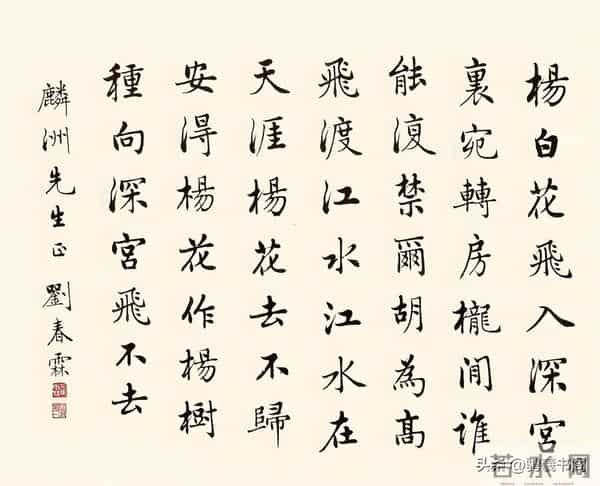 楊白花飛入深宮
裏宛轉房櫳間誰
能復禁爾胡為高
飛渡江水江水在
天涯楊花去不歸
安得楊花作楊樹
種向深宮飛不去
麟洲先生正 劉春霖
头条@
若水网